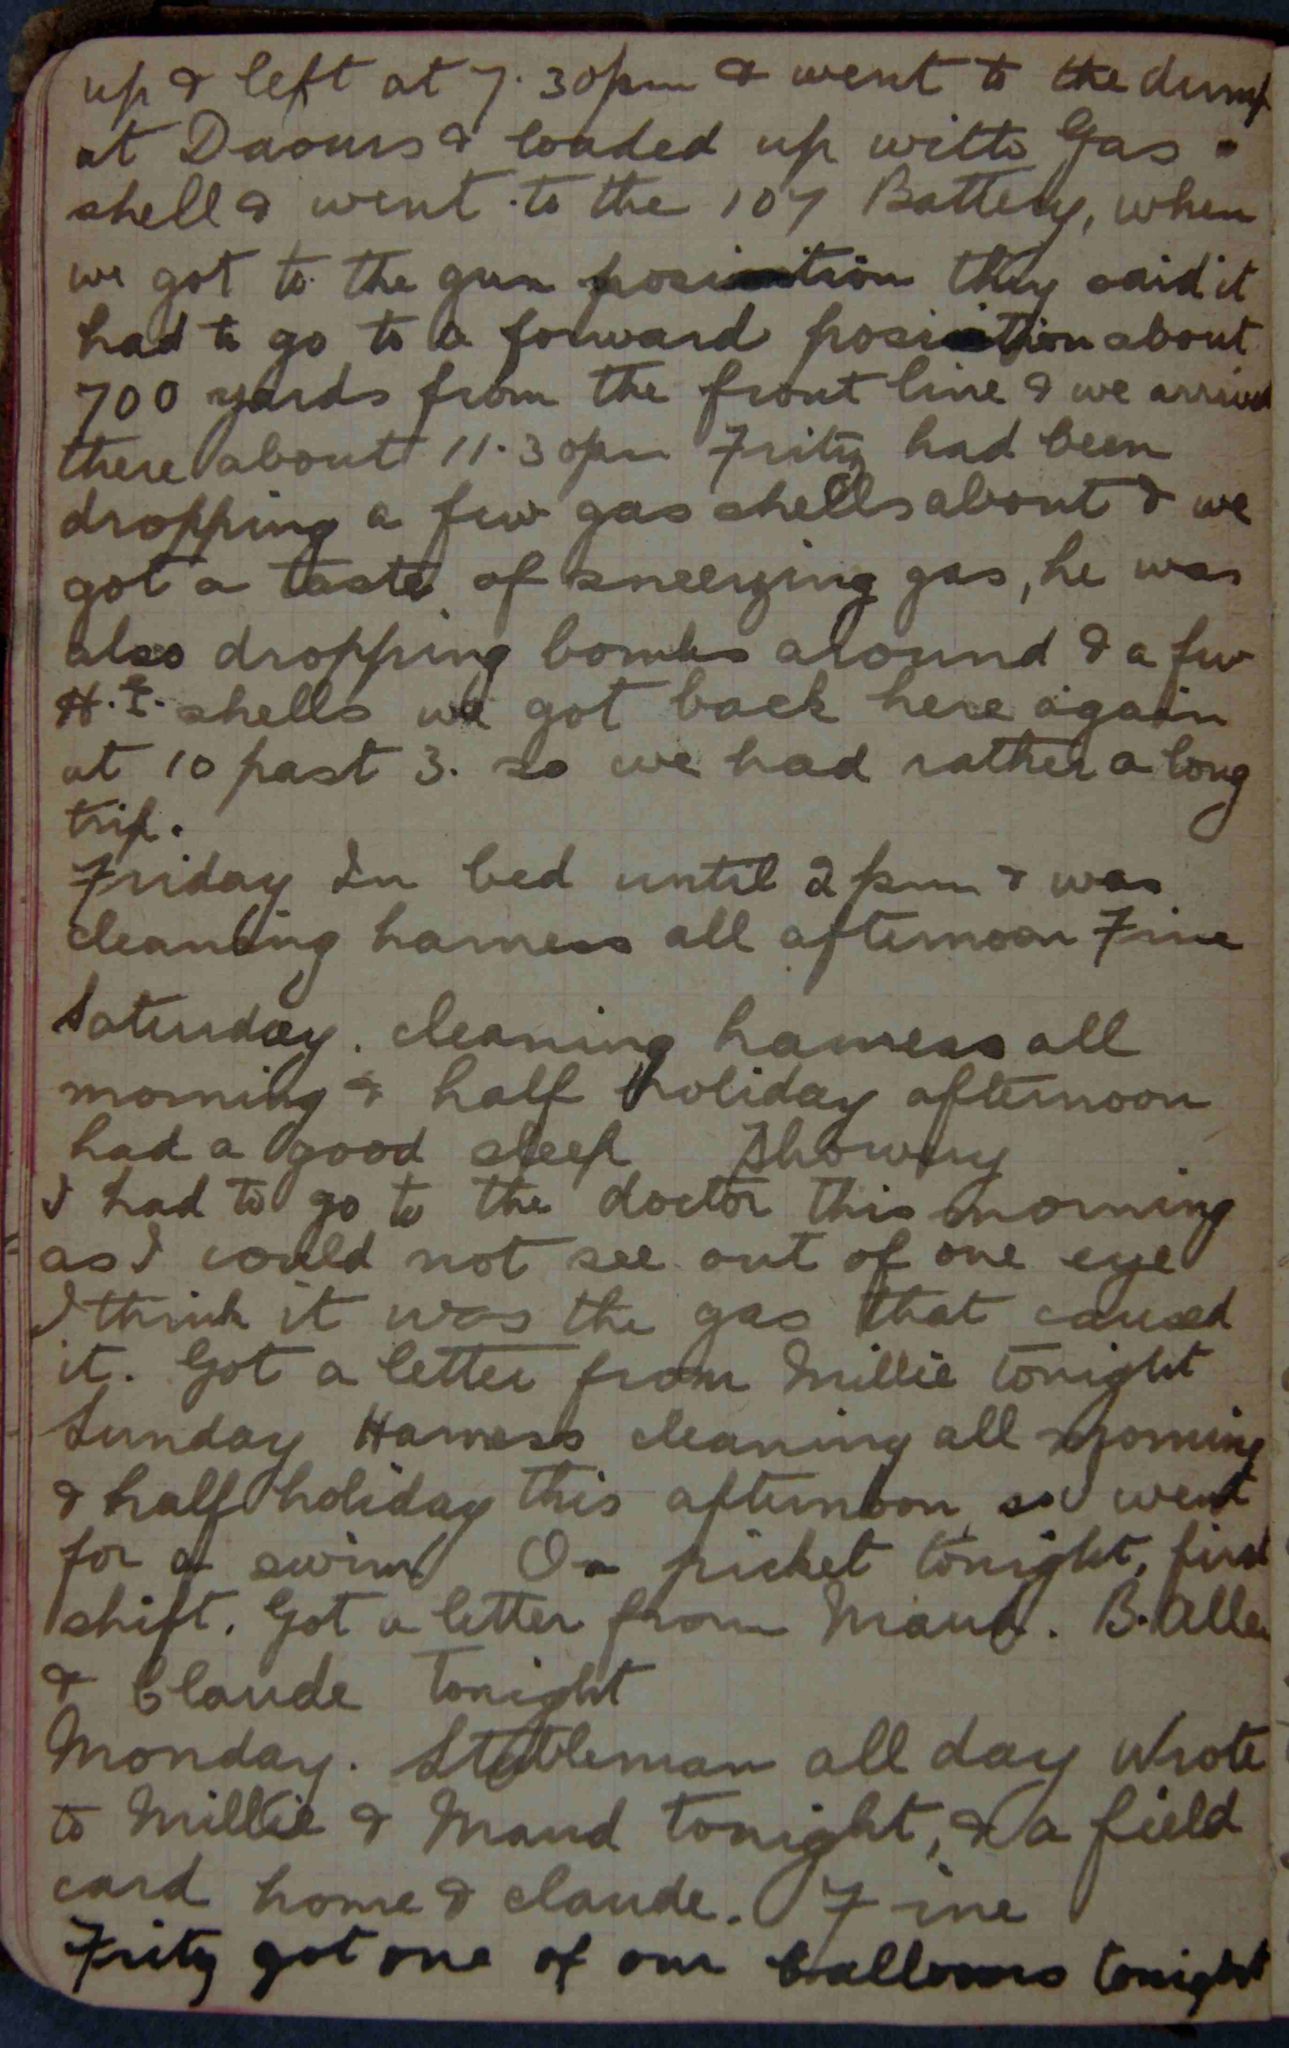 up & left at 7.30pm & went to the dump
at Daours & loaded up with Gas
shell & went to the 107 Battery, when
we got to the gun position they said it
had to go to a forward position about
700 yards from the front line & we arrived
there about 11.30pm Fritz had been
dropping a few gas shells about & we
got a taste of sneezing gas, he was
also dropping bombs around & a few
H.E. shells we got back here again
at 10 past 3. so we had rather a long
trip.
Friday In bed until 2pm & was
cleaning harness all afternoon Fine
Saturday. cleaning harness all
morning & half holiday afternoon
had a good sleep Showery
I had to go to the doctor this morning
as I could not see out of one eye
I think it was the gas that caused
it. Got a letter from Millie tonight
Sunday Harness cleaning all morning
& half holiday this afternoon so went
for a swim On picket tonight, first
shift. Got a letter from Maud. B. Allen
& Claude tonight
Monday. Stableman all day Wrote
to Millie & Maud tonight, & a field
card home & Claude. Fine
Fritz got one of our balloons tonight